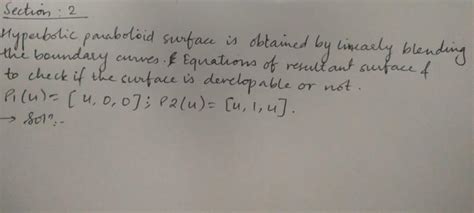 Section : 2
Hyperbolic paraboloid surface is obtained by linearly blending
the boundary curves. & Equations of resultant surface &
to check if the surface is developable or not.
P1(u) = [u, 0, 0] ; P2(u) = [u, 1, u].
→ Solⁿ:-